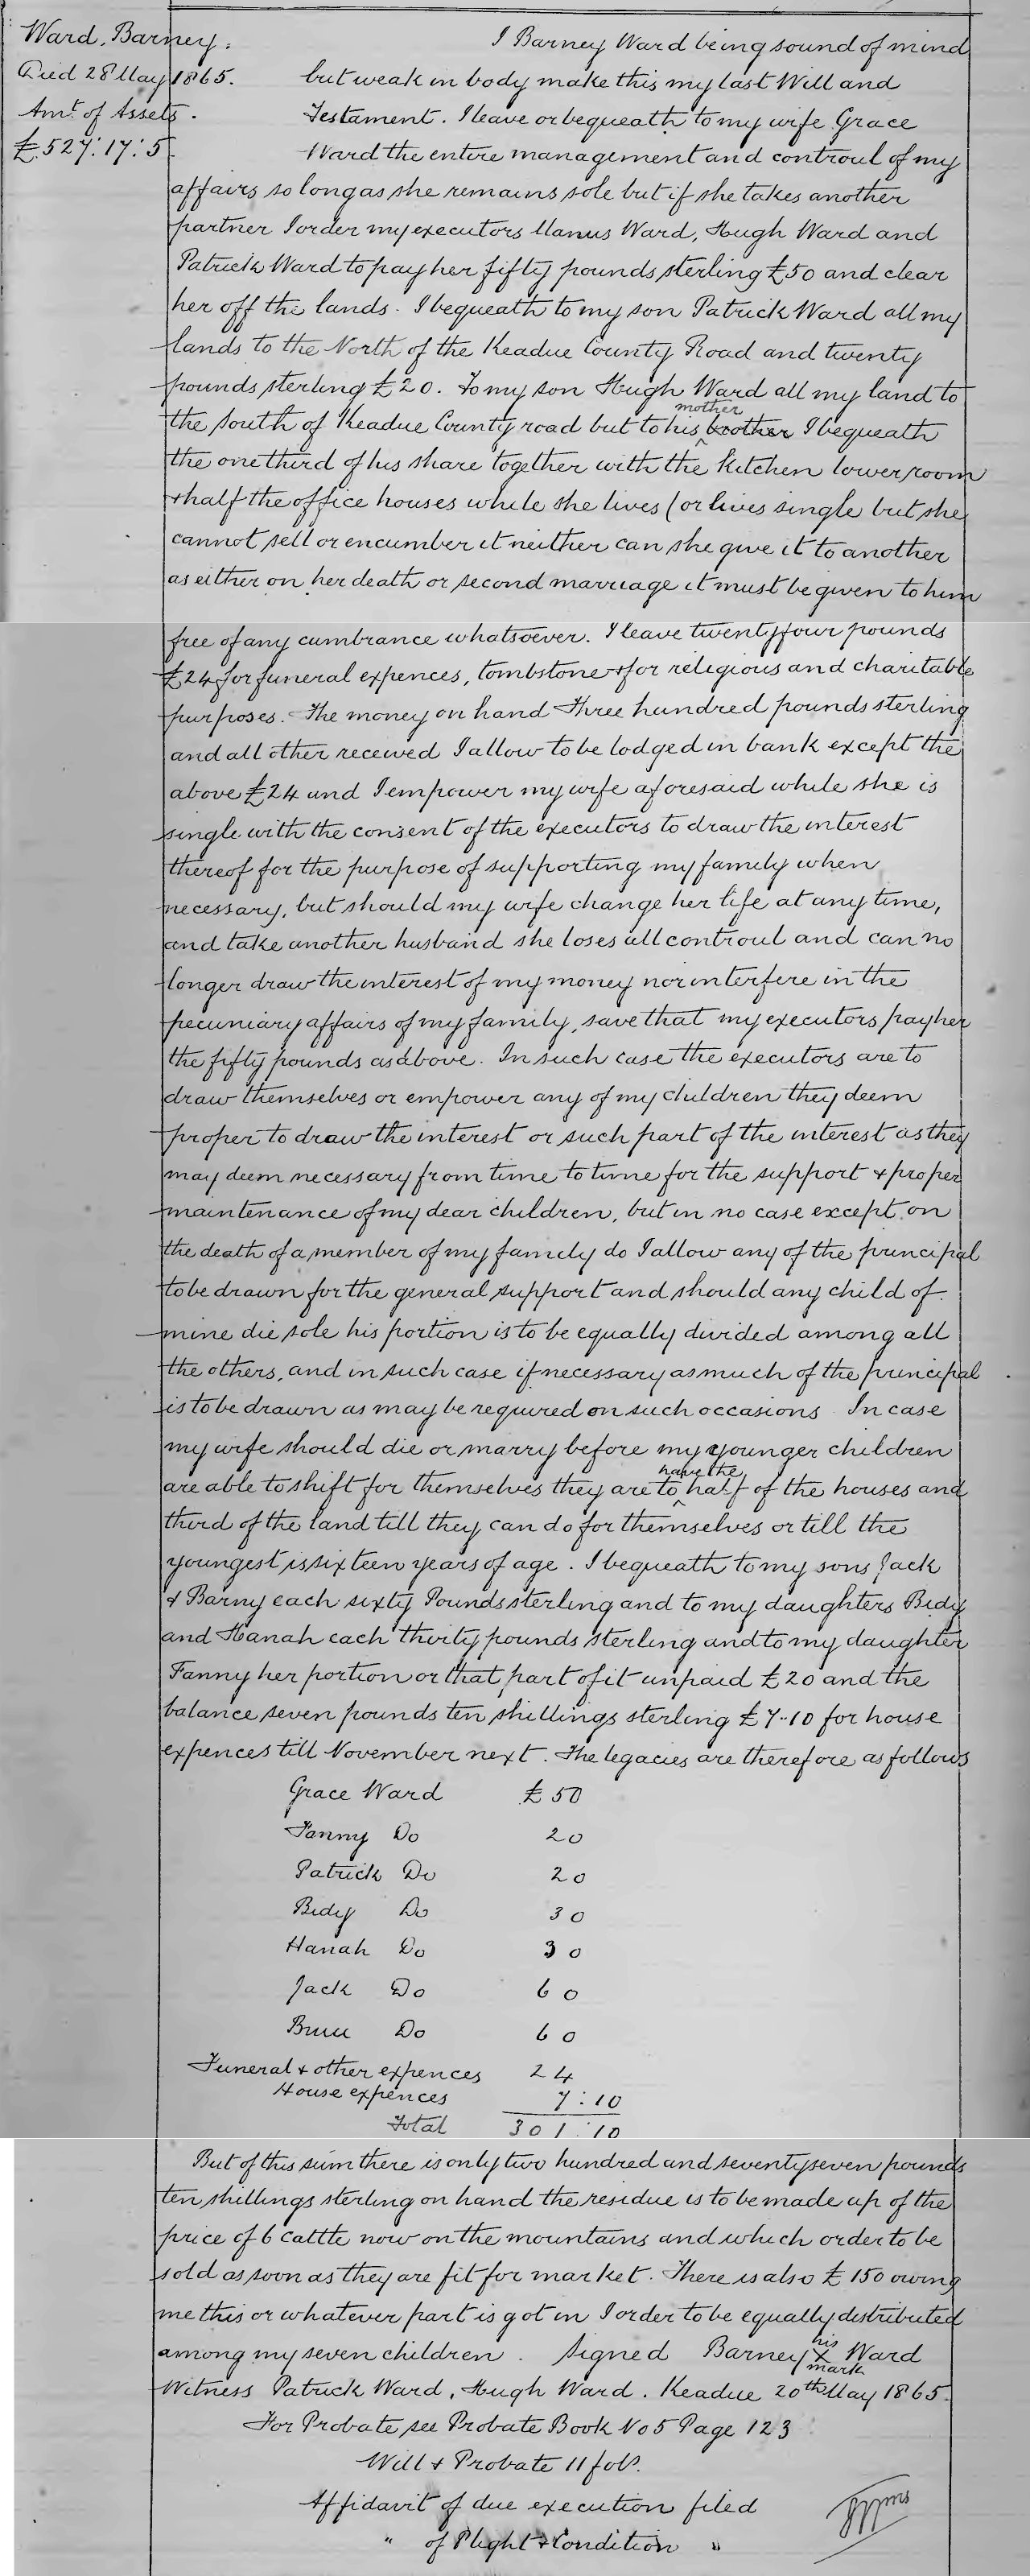 Ward, Barney.
Died 28 May 1865.
Amt. of Assets.
£527:17:5
I Barney Ward being sound of mind
but weak in body make this my last Will and
Testament. I leave or bequeath to my wife Grace
Ward the entire management and controul of my
affairs so long as she remains sole but if she takes another
partner I order my executors Manus Ward, Hugh Ward and
Patrick Ward to pay her fifty pounds sterling £50 and clear
her off the lands. I bequeath to my son Patrick Ward all my
lands to the North of the Keadue County Road and twenty
pounds sterling £20. To my son Hugh Ward all my land to
mother
the south of Keadue County road but to his brother I bequeath
the one third of his share together with the kitchen lower room
+ half the office houses while she lives (or lives single but she
cannot sell or encumber it neither can she give it to another
as either on her death or second marriage it must be given to him
free of any cumbrance whatsoever. I leave twentyfour pounds
£24 for funeral expences, tombstone + for religious and charitable
purposes. The money on hand Three hundred pounds sterling
and all other received I allow to be lodged in bank except the
above £24 and I empower my wife aforesaid while she is
single with the consent of the executors to draw the interest
thereof for the purpose of supporting my family when
necessary, but should my wife change her life at any time,
and take another husband she loses all controul and can no
longer draw the interest of my money nor interfere in the
pecuniary affairs of my family, save that my executors pay her
the fifty pounds as above. In such case the executors are to
draw themselves or empower any of my children they deem
proper to draw the interest or such part of the interest as they
may deem necessary from time to time for the support + proper
maintenance of my dear children, but in no case except on
the death of a member of my family do I allow any of the principal
to be drawn for the general support and should any child of
mine die sole his portion is to be equally divided among all
the others, and in such case if necessary as much of the principal
is to be drawn as may be required on such occasions In case
my wife should die or marry before my younger children
have the
are able to shift for themselves they are to half of the houses and
third of the land till they can do for themselves or till the
youngest is sixteen years of age. I bequeath to my sons Jack
+ Barny each sixty Pounds sterling and to my daughters Bidy
and Hanah each thirty pounds sterling and to my daughter
Fanny her portion or that part of it unpaid £20 and the
balance seven pounds ten shillings sterling £7..10 for house
expences till November next. The legacies are therefore as follows
Grace Ward £50
Fanny Do 20
Patrick Do 20
Bidy Do 30
Hanah Do 30
Jack Do 60
Do 60
Funeral + other expences 24
House expences 7:10
Total 301:10
But of this sum there is only two hundred and seventyseven pounds
ten shillings sterling on hand the residue is to be made up of the
price of 6 cattle now on the mountains and which order to be
sold as soon as they are fit for market. There is also £150 owing
me this or whatever part is got in I order to be equally distributed
among my seven children. Signed Barney his X mark Ward
Witness Patrick Ward, Hugh Ward. Keadue 20th May 1865.
For Probate see Probate Book No 5 Page 123
Will + Probate 11 fols.
Affidavit of due execution filed
" of Plight + Condition "